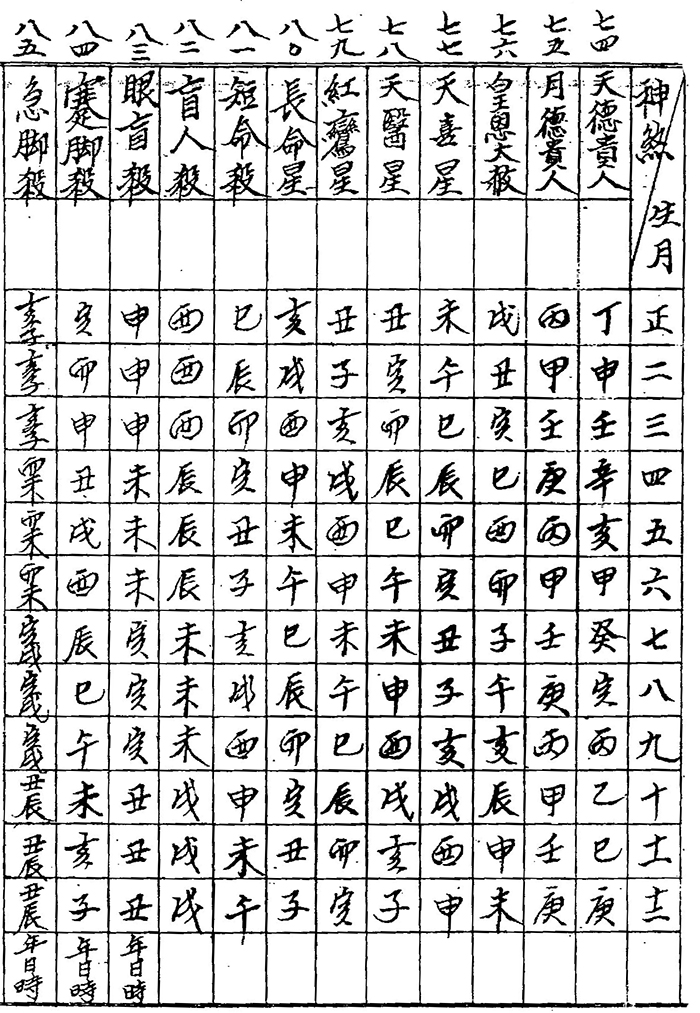 神煞/生月 正 二 三 四 五 六 七 八 九 十 十一 十二
七四 天德貴人 丁 申 壬 辛 亥 甲 癸 寅 丙 乙 巳 庚
七五 月德貴人 丙 甲 壬 庚 丙 甲 壬 庚 丙 甲 壬 庚
七六 皇恩大赦 戌 丑 寅 巳 酉 卯 子 午 亥 辰 申 未
七七 天喜星 未 午 巳 辰 卯 寅 丑 子 亥 戌 酉 申
七八 天醫星 丑 寅 卯 辰 巳 午 未 申 酉 戌 亥 子
七九 紅鸞星 丑 子 亥 戌 酉 申 未 午 巳 辰 卯 寅
八〇 長命星 亥 戌 酉 申 未 午 巳 辰 卯 寅 丑 子
八一 短命殺 巳 辰 卯 寅 丑 子 亥 戌 酉 申 未 午
八二 盲人殺 酉 酉 酉 辰 辰 辰 未 未 未 戌 戌 戌
八三 眼盲殺 申 申 申 未 未 未 寅 寅 寅 丑 丑 丑 年日時
八四 蹇脚殺 寅 卯 申 丑 戌 酉 辰 巳 午 未 亥 子 年日時
八五 急脚殺 亥子 亥子 亥子 卯未 卯未 卯未 寅戌 寅戌 寅戌 丑辰 丑辰 丑辰 年日時